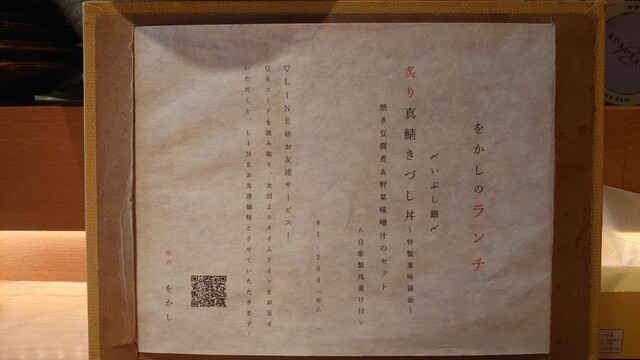 をかしのランチ
〆いぶし銀〆
炙り真鯖きづし丼～特製薬味醤油～
焼き豆腐煮&野菜味噌汁のセット
＜自家製浅漬け付＞
¥1,200(税込)
▽LINE@お友達サービス!
QRコードを読み取り、次回よりタイムラインをお見せ
いただくと、LINEお友達価格とさせていただきます。
をかし